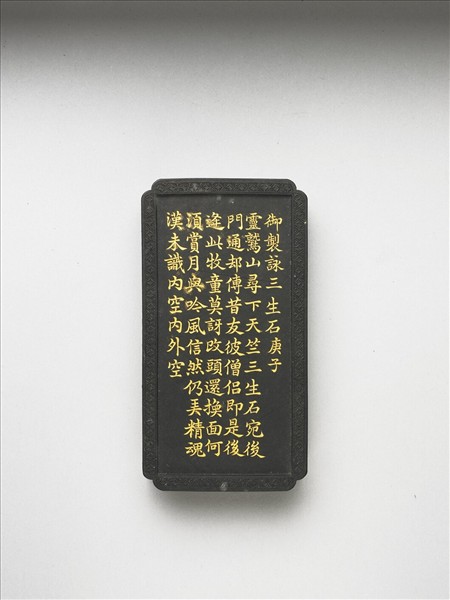 御製詠三生石庚子
靈鷲山尋下天竺三生石宛後
門通却傳昔友彼僧侶即是後
逄此牧童莫訝改頭還換面何
須賞月與吟風信然仍弄精魂
漢未識內空內外空